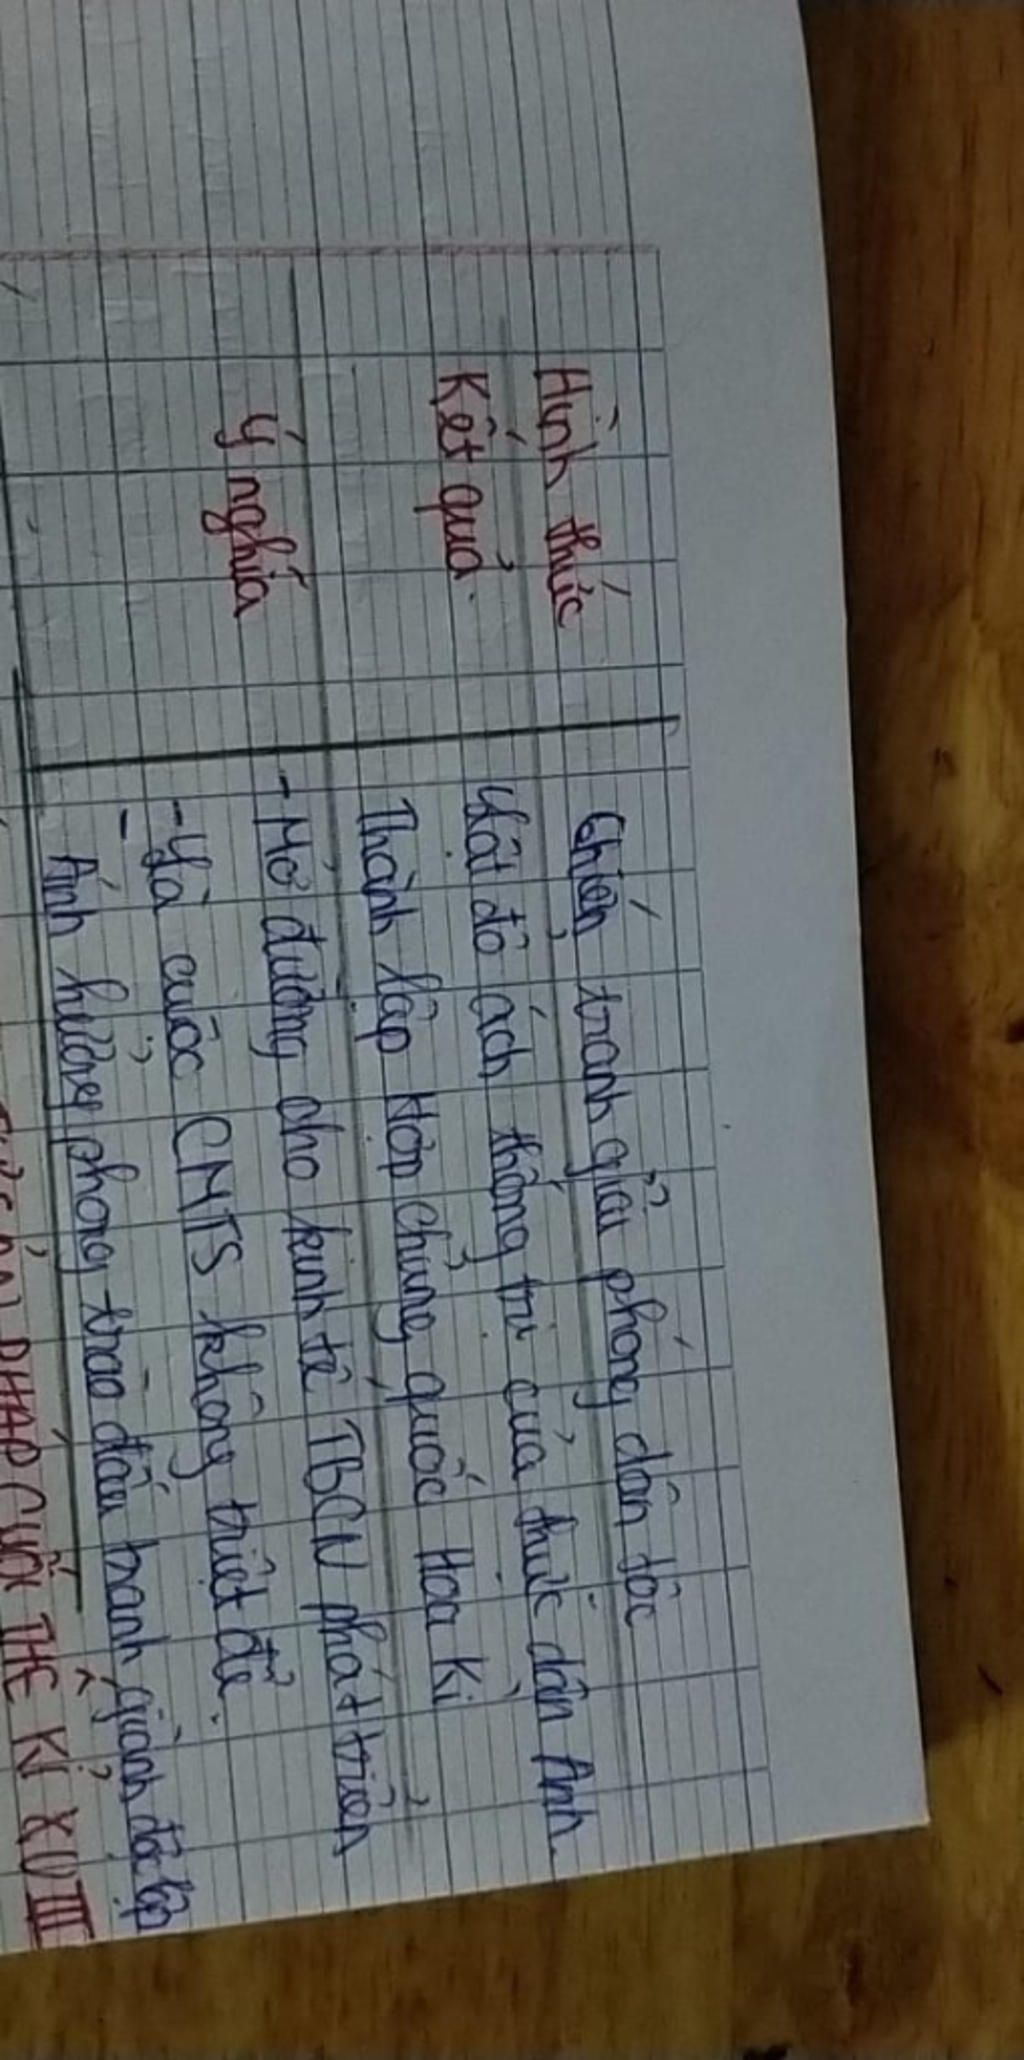 Hình thức
Chiến tranh giải phóng dân tộc
Kết quả
Lật đổ ách thống trị của thực dân Anh.
Thành lập Hợp chủng quốc Hoa Kì
Ý nghĩa
- Mở đường cho kinh tế TBCN phát triển
- Là cuộc CMTS không triệt để.
- Ảnh hưởng phong trào đấu tranh giành độc lập
PHÁP CUỐI THẾ KỈ XVIII